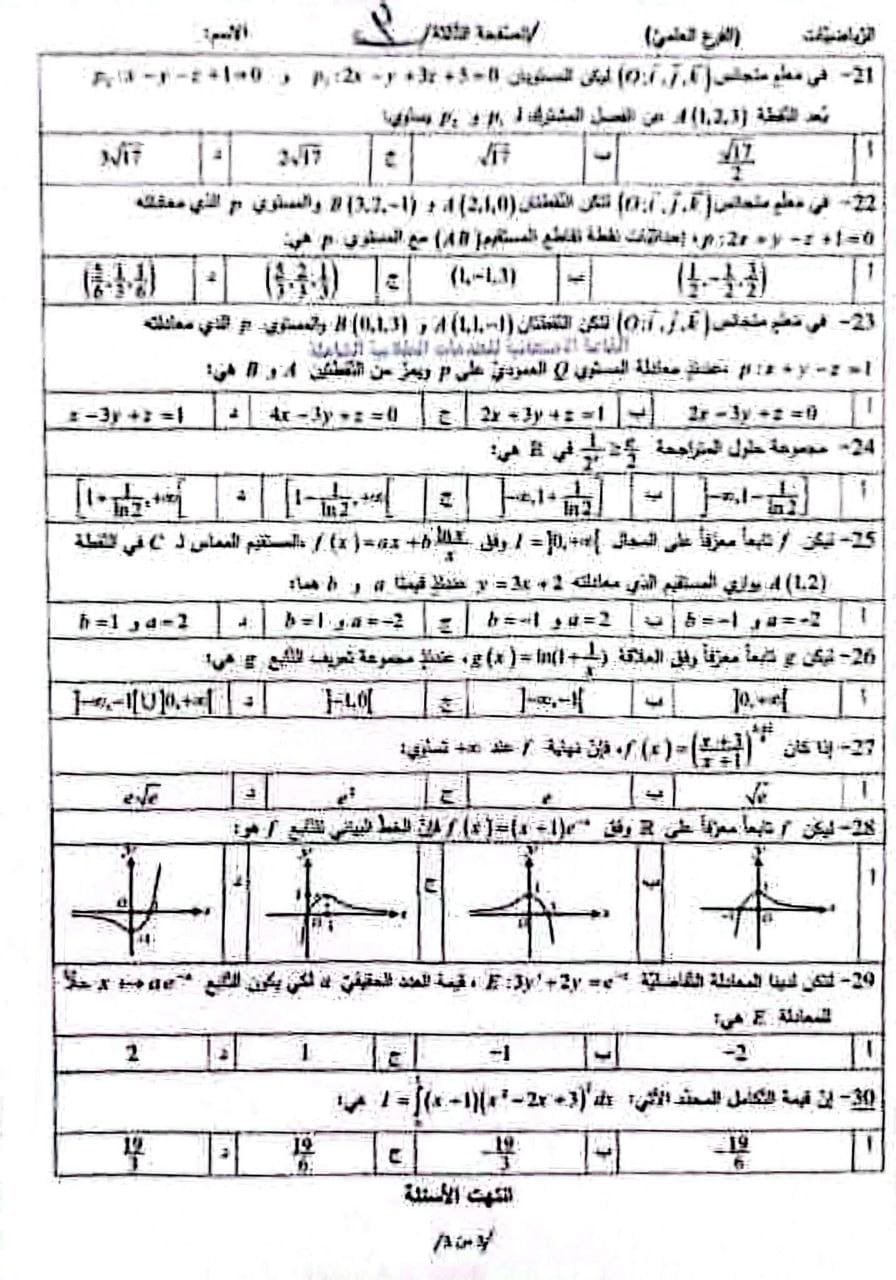 الرياضيات (الفرع العلمي) /الصفحة الثالثة/ الاسم:
21- في معلم متجانس (O; i, j, k) ليكن المستويان p₁: 2x − y + 3z + 5 = 0 و p₂: x − y − z + 1 = 0
بُعد النقطة A(1,2,3) عن الفصل المشترك لـ p₁ و p₂ يساوي:
أ √17/2 ب √17 ج 2√17 د 3√17
22- في معلم متجانس (O; i, j, k) لتكن النقطتان A(2,1,0) و B(3,2,−1) والمستوي p الذي معادلته
p: 2x + y − z + 1 = 0، إحداثيات نقطة تقاطع المستقيم (AB) مع المستوي p هي:
أ (1/2, −1/2, 3/2) ب (1,−1,3) ج (5/3, 2/3, 1/3) د (5/6, 1/3, 1/6)
23- في معلم متجانس (O; i, j, k) لتكن النقطتان A(1,1,−1) و B(0,1,3) والمستوي p الذي معادلته
p: x + y − z = 1 عندئذٍ معادلة المستوي Q العمودي على p ويمرّ من النقطتين A و B هي:
أ 2x − 3y + z = 0 ب 2x + 3y + z = 1 ج 4x − 3y + z = 0 د x − 3y + z = 1
24- مجموعة حلول المتراجحة 1/2ˣ ≥ e/2 في ℝ هي:
أ ]−∞, 1 − 1/ln2] ب ]−∞, 1 + 1/ln2] ج [1 − 1/ln2, +∞[ د [1 + 1/ln2, +∞[
25- ليكن f تابعاً معرّفاً على المجال I = ]0,+∞[ وفق f(x) = ax + b lnx/x، المستقيم المماس لـ C في النقطة
A(1,2) يوازي المستقيم الذي معادلته y = 3x + 2 عندئذٍ قيمتا a و b هما:
أ a = −2 و b = −1 ب a = 2 و b = −1 ج a = −2 و b = 1 د a = 2 و b = 1
26- ليكن g تابعاً معرّفاً وفق العلاقة g(x) = ln(1 + 1/x)، عندئذٍ مجموعة تعريف التابع g هي:
أ ]0,+∞[ ب ]−∞,−1[ ج ]−1,0[ د ]−∞,−1[∪]0,+∞[
27- إذا كان f(x) = ((x+3)/(x+1)) ، فإنّ نهاية f عند +∞ تساوي:
أ √e ب e ج e² د e√e
28- ليكن f تابعاً معرّفاً على ℝ وفق f(x) = (x + 1)e⁻ˣ فإنّ الخط البياني للتابع f هو:
أ ب ج د
29- لتكن لدينا المعادلة التفاضلية E: 3y′ + 2y = e⁻ˣ ، قيمة العدد الحقيقي a لكي يكون التابع x ↦ ae⁻ˣ حلاً
للمعادلة E هي:
أ −2 ب −1 ج 1 د 2
30- إنّ قيمة التكامل المحدّد الآتي: I = ∫(x − 1)(x² − 2x + 3)² dx هي:
أ −19/6 ب −19/3 ج 19/6 د 19/3
انتهت الأسئلة